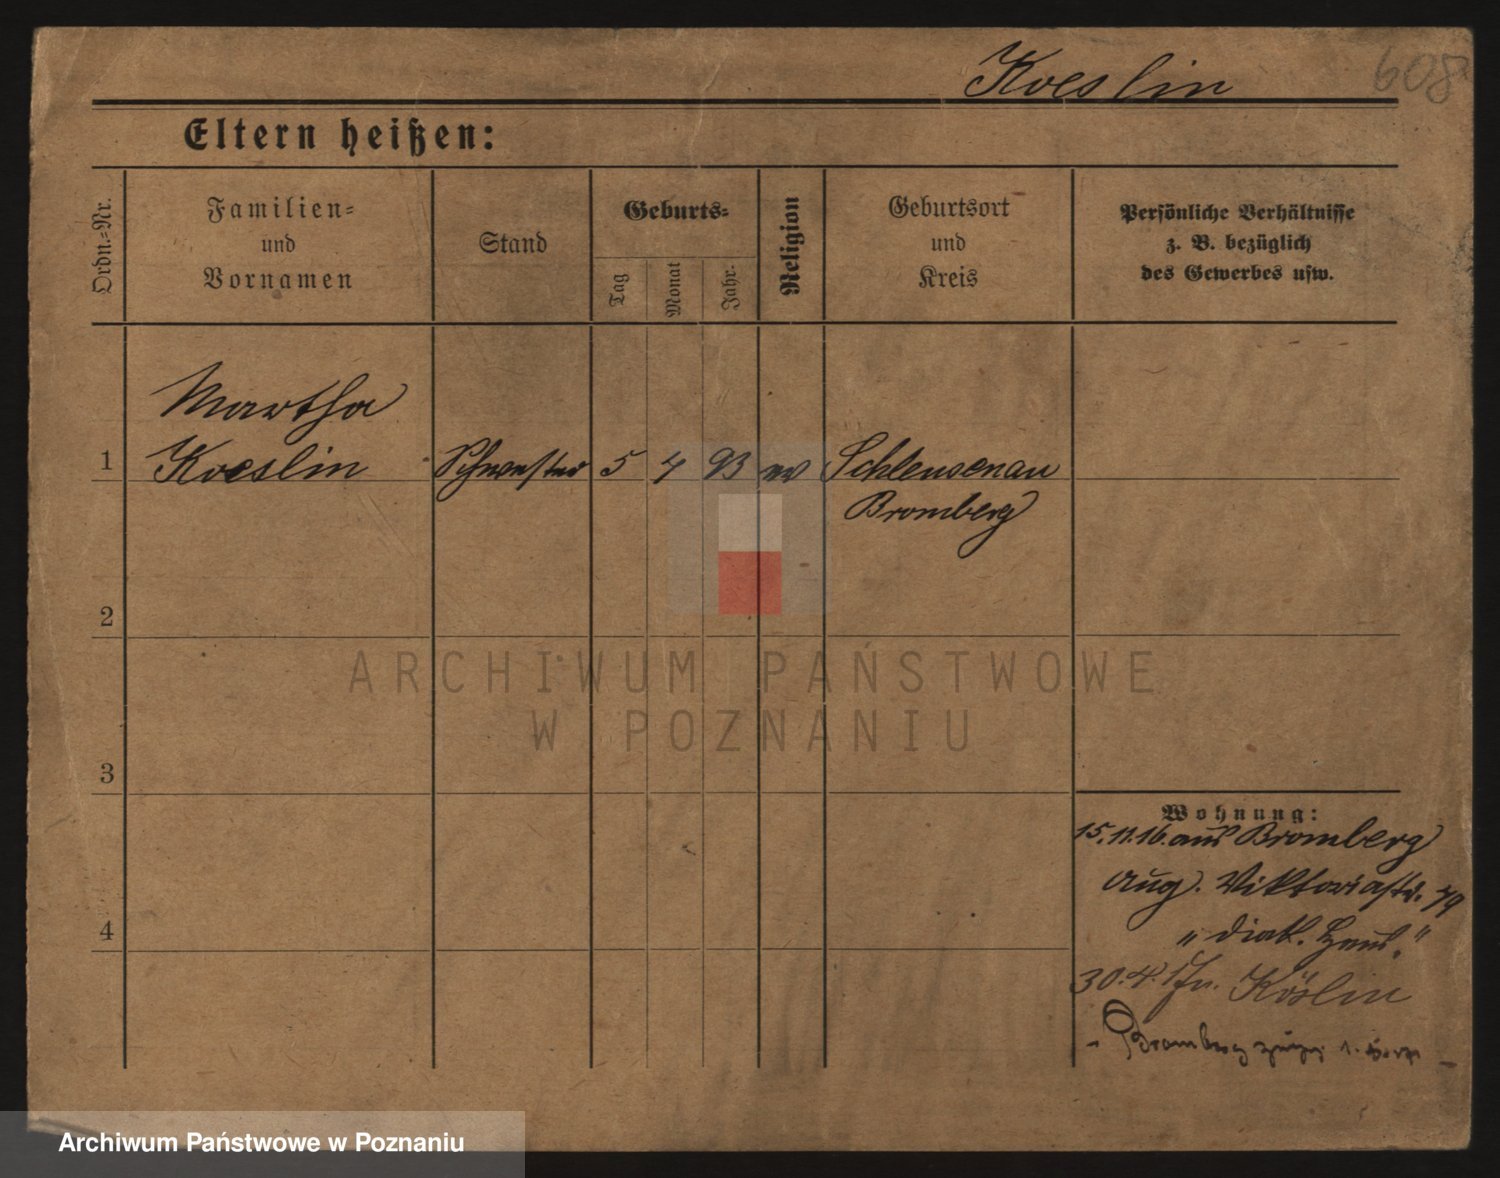 Koeslin 608
Eltern heißen:
Ordn.-Nr.
Familien-
und
Vornamen
Stand
Geburts-
Tag
Monat
Jahr.
Religion
Geburtsort
und
Kreis
Persönliche Verhältnisse
z. B. bezüglich
des Gewerbes usw.
Martha
1 Koeslin Schwester 5 4 93 ev Schleusenau
Bromberg
2
ARCHIWUM PAŃSTWOWE
W POZNANIU
3
Wohnung:
15.11.16. aus Bromberg
Aug. Viktoriastr. 79
4
„Diak. Haus."
30.4.17 n. Köslin
Bromberg
Archiwum Państwowe w Poznaniu